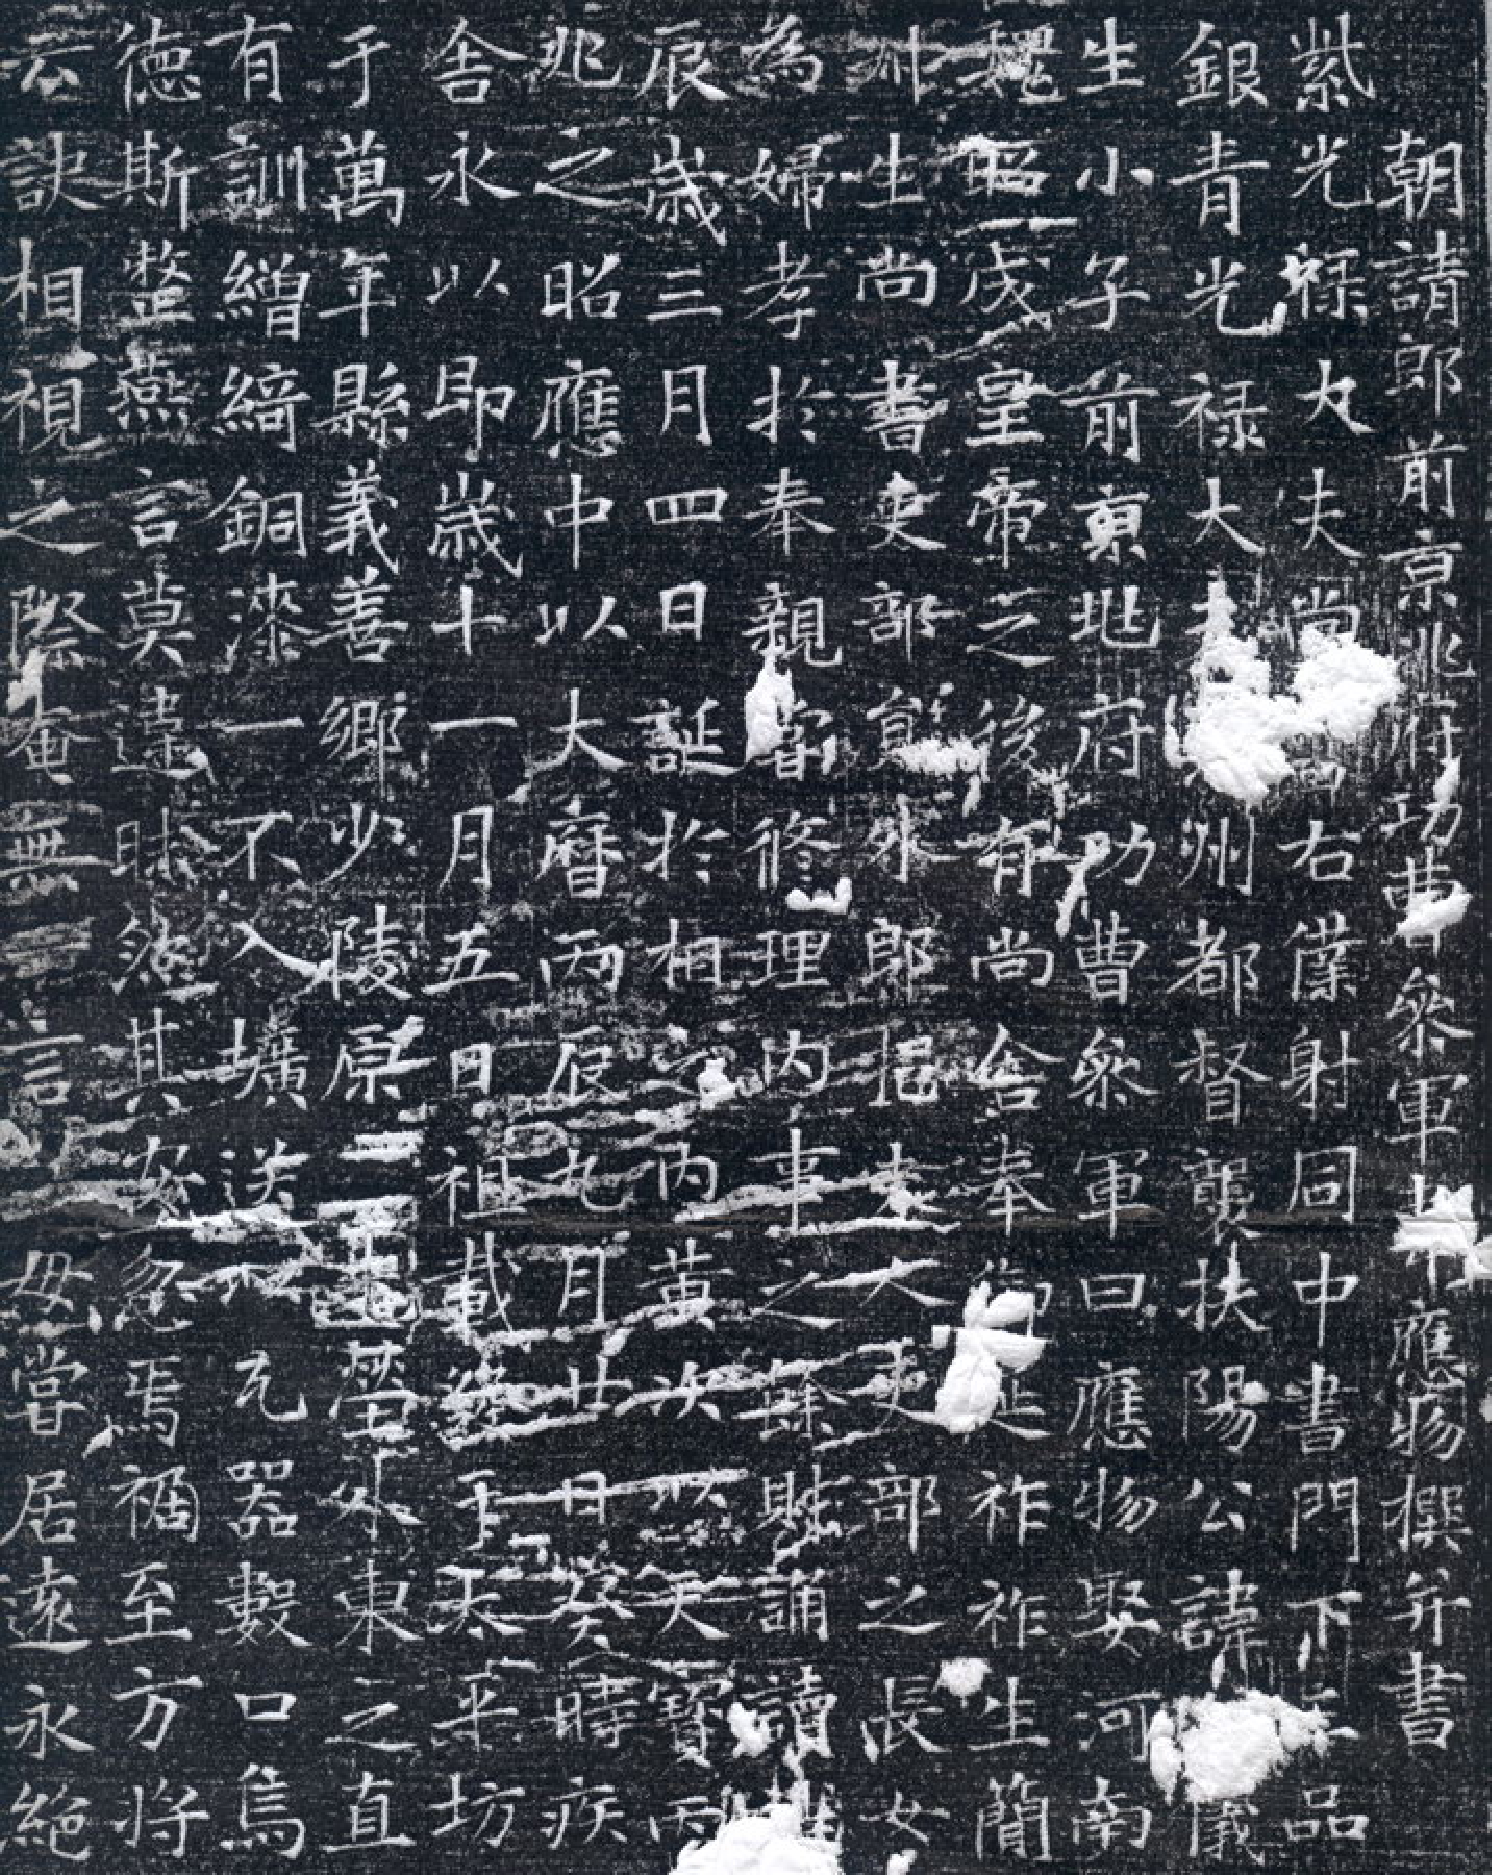 朝請郎前京兆府功曹參軍應物撰并書
紫光祿大夫尚右僕射同中書門下三品
銀青光祿大夫州都督襲扶陽公諱儀
生小子前京兆府功曹參軍曰應物娶河南
魏昭成皇帝之後有尚舍奉御延祚祚生簡
州生尚書吏部員外郎挹夫人吏部之長女
為婦孝於奉親嘗修理內事之餘則誦讀詩
辰歲三月四日誕於相之內黃次以天寶丙
兆之昭應中以大曆丙辰九月廿日癸時疾
舍永以即歲十一月五日祖載終于太平坊
于萬年縣義善鄉少陵原先塋外東之直
有訓繒綺銅漆一不入壙送以瓦器數口烏
德斯整燕言莫違昧然其安忽焉禍至方將
云訣相視之際奄無一言母嘗居遠永絕